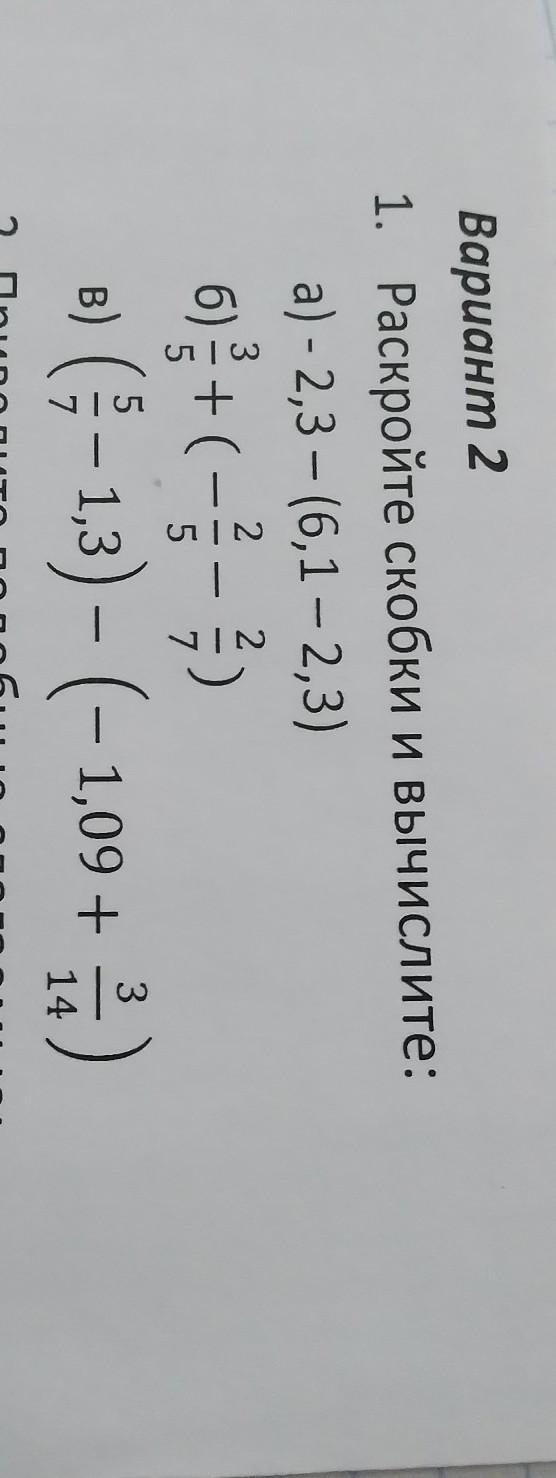 Вариант 2
1. Раскройте скобки и вычислите:
а) - 2,3 – (6,1 – 2,3)
б) 3/5 + ( – 2/5 – 2/7 )
в) ( 5/7 – 1,3) – ( – 1,09 + 3/14 )